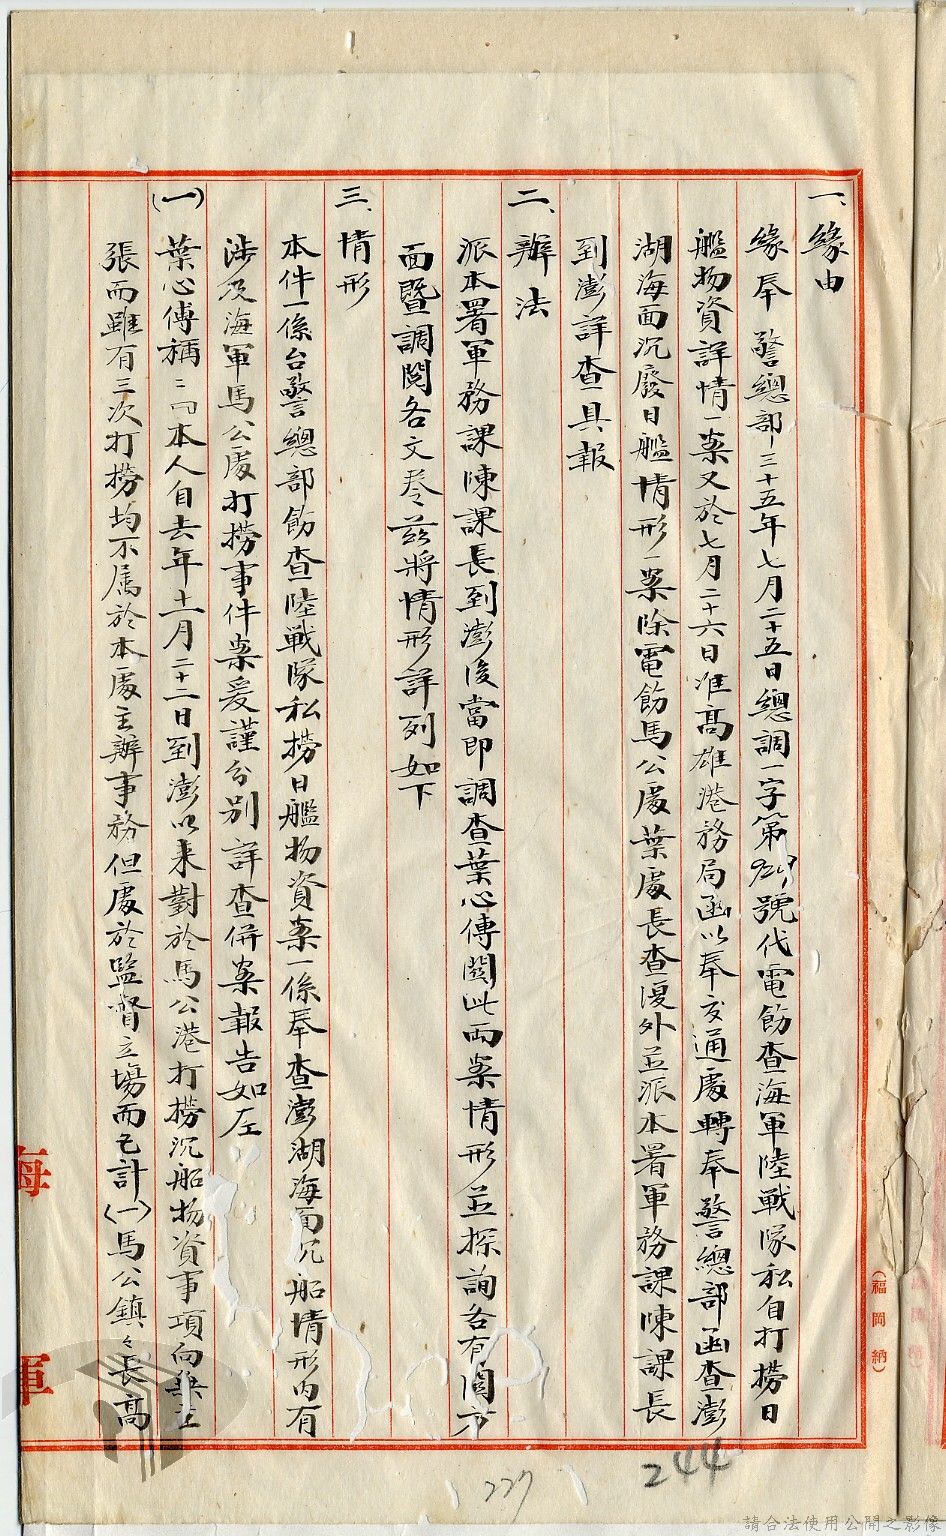 一、緣由
緣奉 警總部三十五年七月二十五日總調一字第929號代電飭查海軍陸戰隊私自打撈日
艦物資詳情一案又於七月二十六日准高雄港務局函以奉交通處轉奉警總部函查澎
湖海面沉廢日艦情形一案除電飭馬公處葉處長查復外並派本署軍務課陳課長
到澎詳查具報
二、辦法
派本署軍務課陳課長到澎後當即調查葉心傳關此兩案情形並探詢各有關方
面暨調閱各文卷茲將情形詳列如下
三、情形
本件一係台警總部飭查陸戰隊私撈日艦物資案一係奉查澎湖海面沉船情形內有
涉及海軍馬公處打撈事件案爰謹分別詳查併案報告如左
(一)葉心傳稱：「本人自去年十一月二十二日到澎以來對於馬公港打撈沉船物資事項向無主
張而雖有三次打撈均不属於本處主辦事務但處於監督立場而已計〈一〉馬公鎮々長高
海
軍
(福岡納)
227
244
請合法使用公開之影像